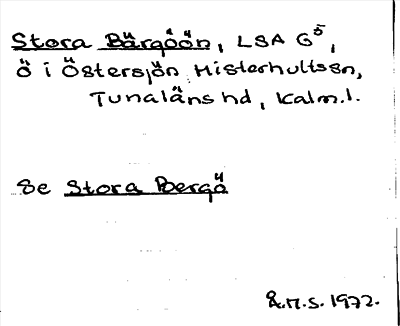 Stora Bärgöön, LSA G5,
ö i Östersjön Misterhultssn,
Tunaläns hd, Kalm.l.
Se Stora Bergö
Å.M.S. 1972.